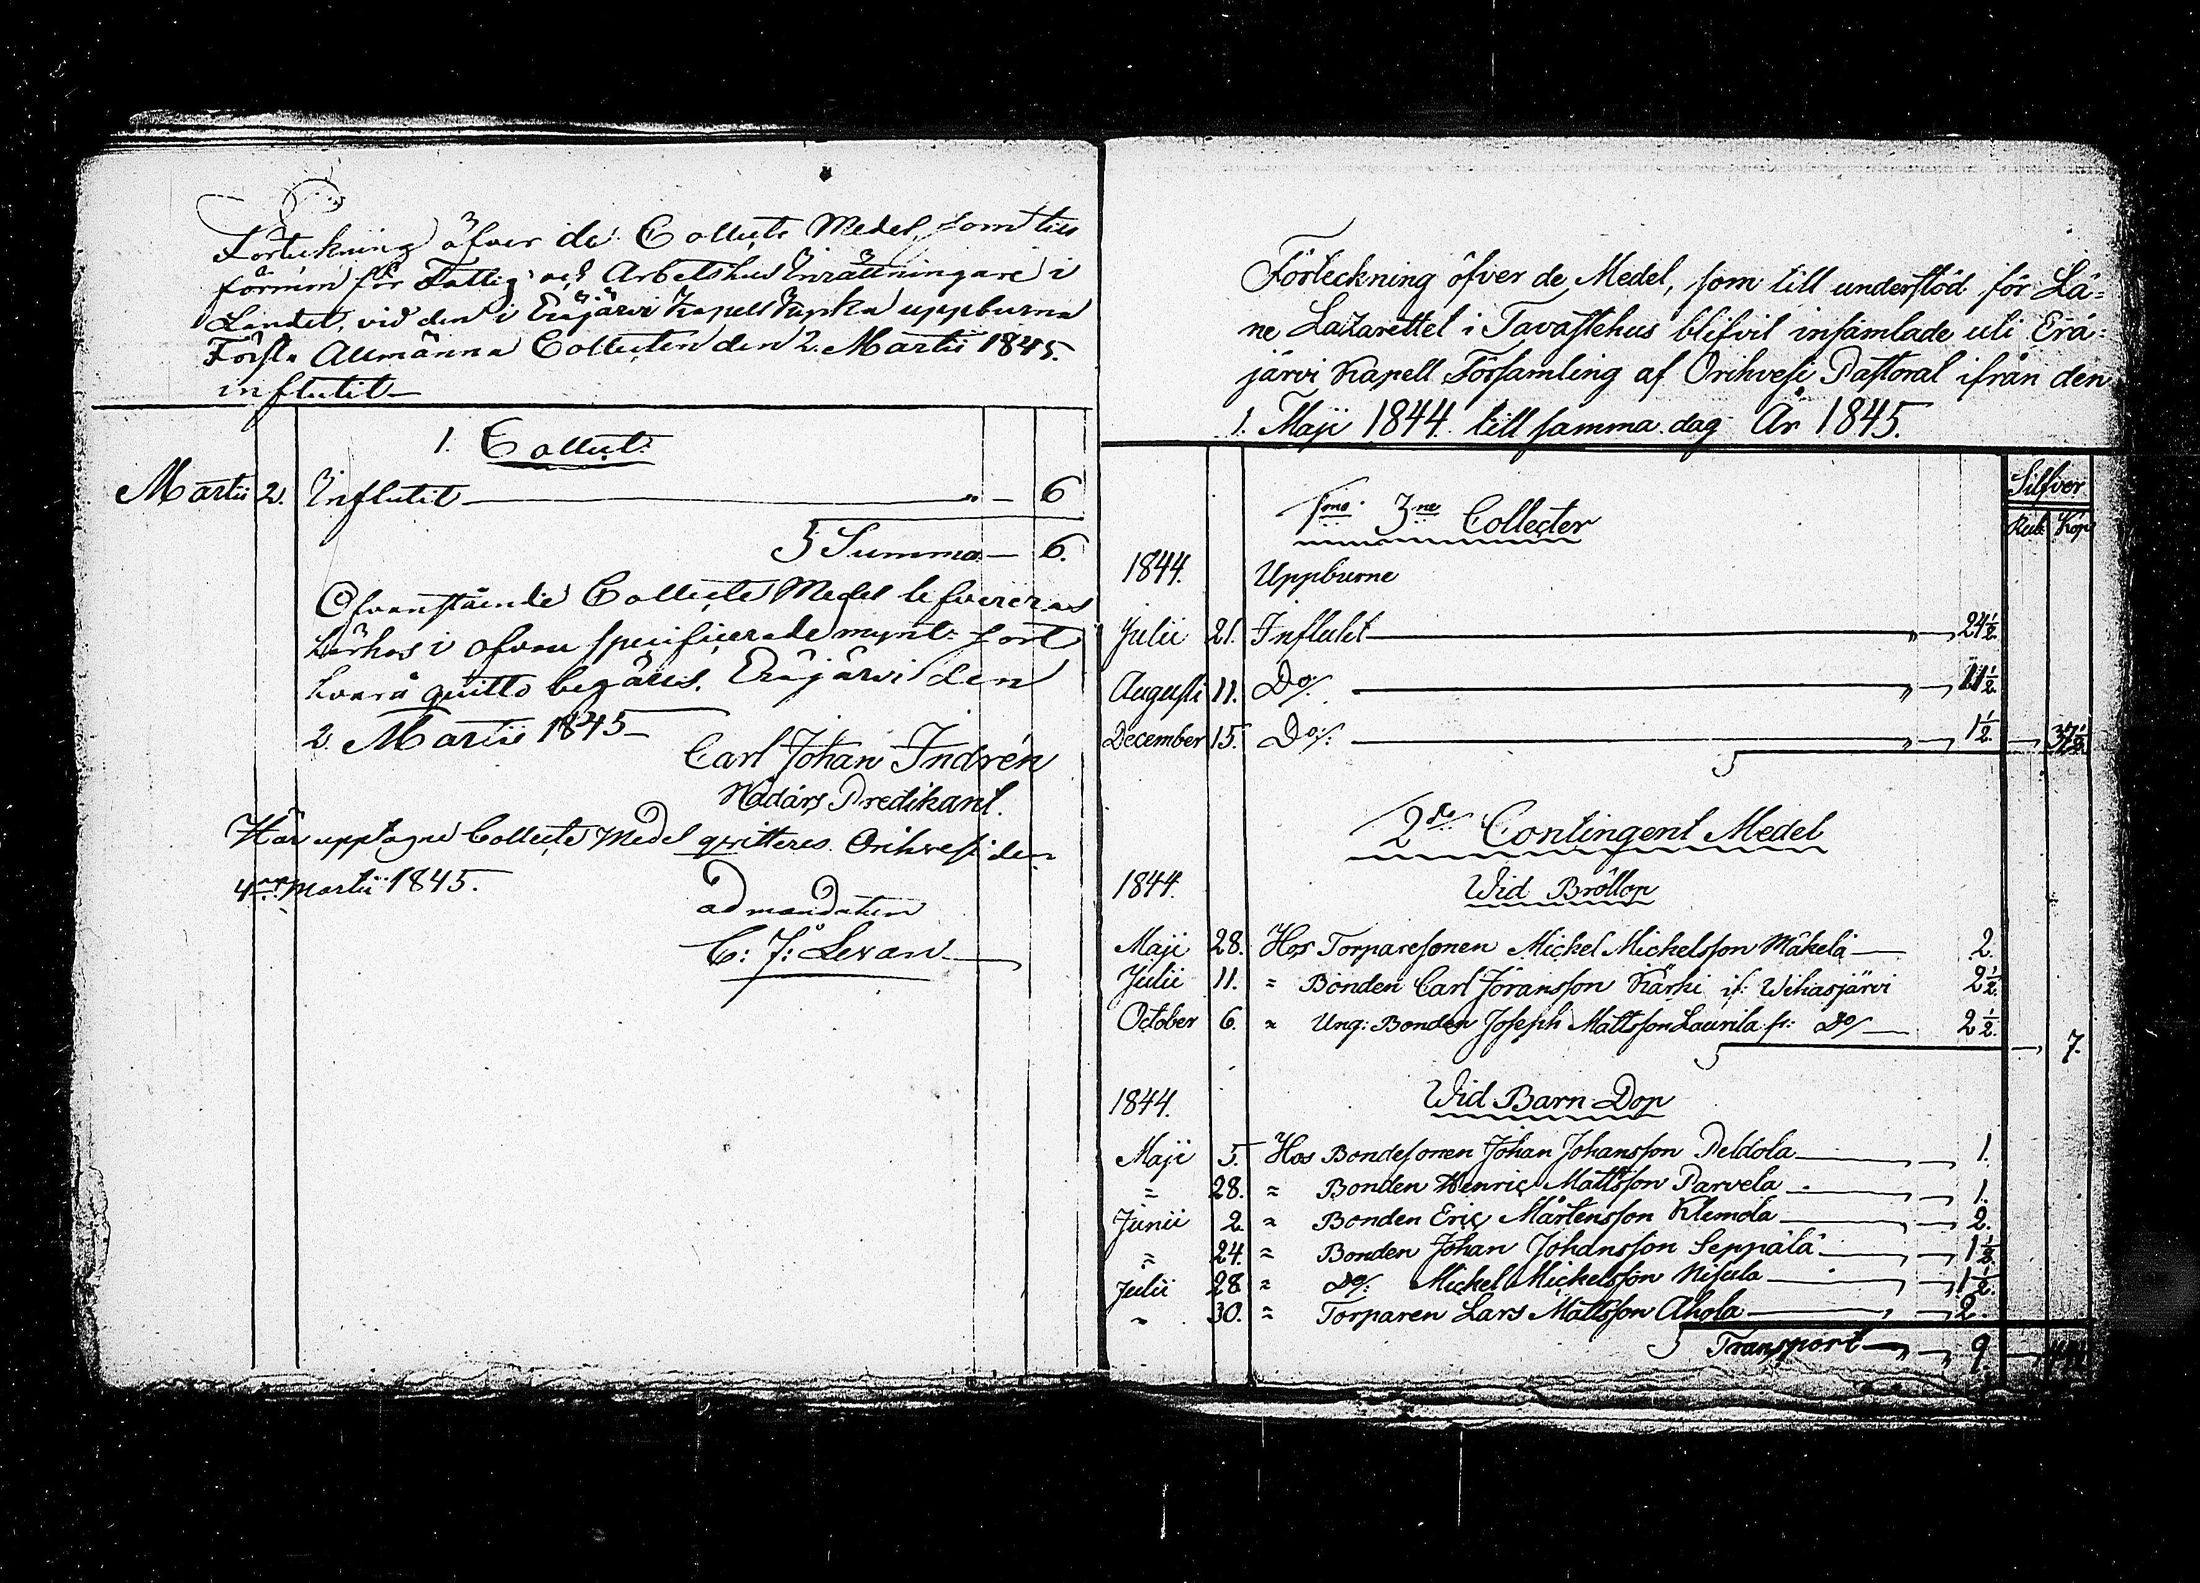 Förteckning öfver de Collects Medel, som till
förmon för Fattig och Arbetshus Inrättningare i
Landet, vid den i Eräjärvi Kapell Kyrka uppburna
Första Allmänna Collecten den 2. Martii 1845.
influtit
1. Collect:
Martii 2. Influtit " 6
Summa 6.
Ofvanstående Collects Medel lefvereras
härhos i ofvan specificerade mynt
qvitto begäres. Eräjärvi den
2. Martii 1845
Carl Johan Indrén
Nådårs Predikant.
Här upptagne Collects Medel qvitteres. Orihvesi den
4 Martii 1845.
ad mandatum
C: J: Levan
Förteckning öfver de Medel, som till understöd för Lä=
ne Lazarettet i Tavastehus blifvit insamlade uti Erä=
järvi Kapell Församling af Orihvesi Pastoral ifrån den
1. Maji 1844. till samma dag År 1845.
Silfver
Rub. Kop
1mo 3ne Collecter
1844. Uppburne
Julii 21. Influtit " 24½.
Augusti 11. Do/. " 11½.
December 15. Do/: " 1½. 37½.
2do Contingent Medel
1844. Wid Bröllop
Maji 28. Hos Torparesonen Michel Michelsson Mäkelä 2.
Julii 11. " Bonden Carl Jöransson Kärki if: Wihasjärvi 2½.
October 6. " Ung: Bonden Joseph Mattsson Laurila fr: Do/ 2½. 7.
1844. Wid Barn Dop
Maji 5. Hos Bondesonen Johan Johansson Peldola " 1.
" 28. " Bonden Henric Mattsson Parvela " 1.
Junii 2. " Bonden Eric Mårtensson Klemola " 2.
" 24. " Bonden Johan Johansson Seppälä " 1½.
Julii 28 " Do/: Michel Michelsson Nisula " 1½.
" 30. " Torparen Lars Mattsson Ahola " 2.
Transport " 9